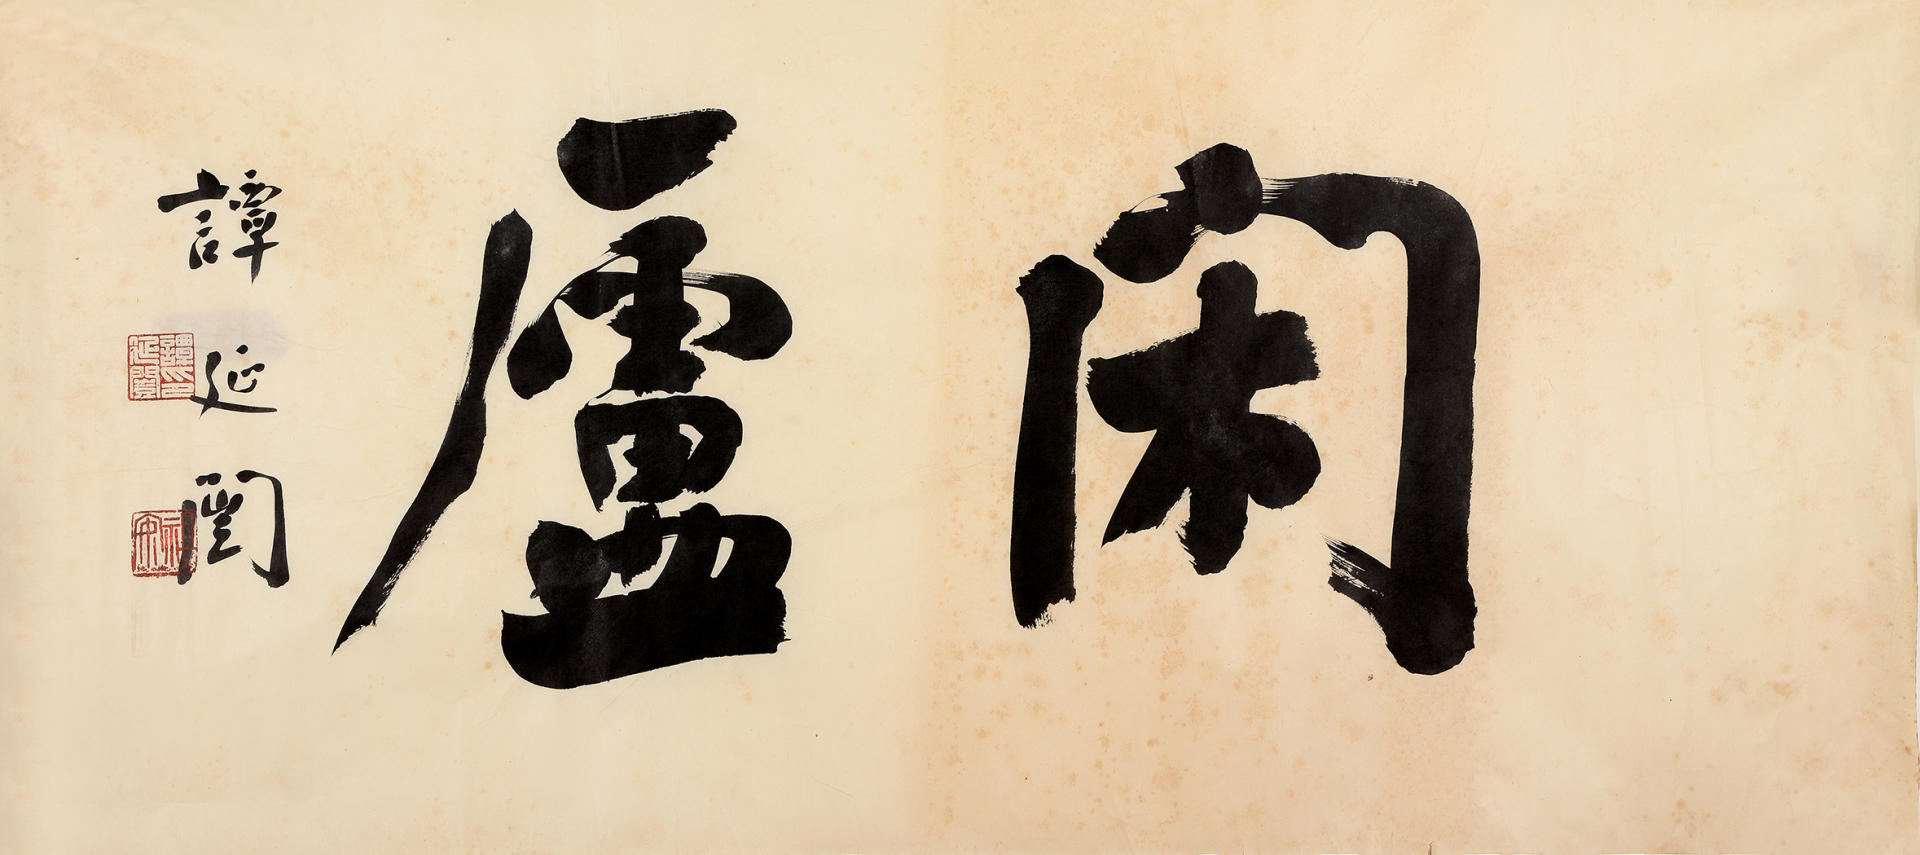 閑廬
譚延闓
譚延闓印
祖安